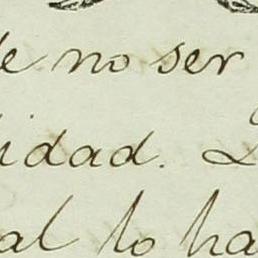 de no ser
lidad. L
al lo ha